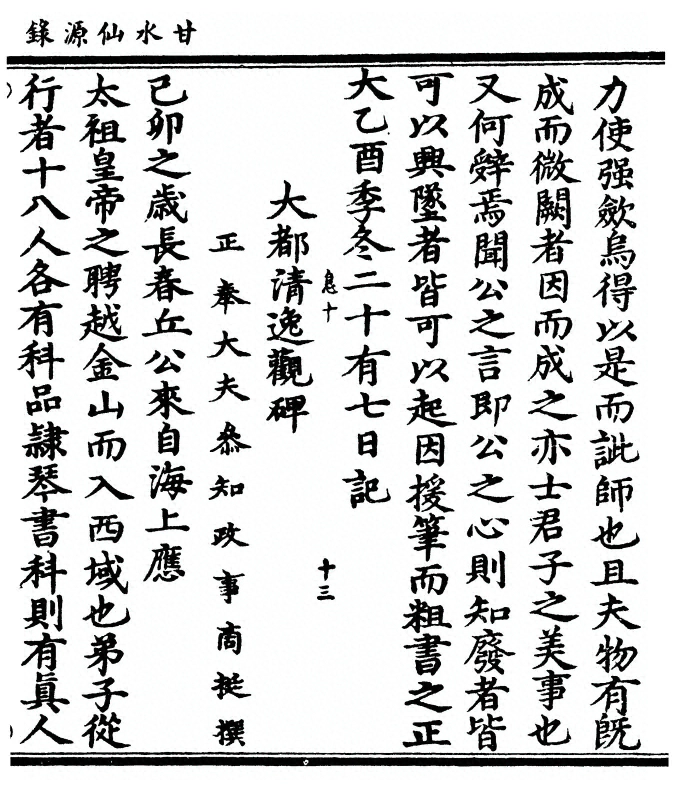 甘水仙源錄
力使强歛烏得以是而訿師也且夫物有旣
成而微闕者因而成之亦士君子之美事也
又何辤焉聞公之言即公之心則知廢者皆
可以興墜者皆可以起因援筆而粗書之正
大乙酉季冬二十有七日記
息十
十三
大都清逸觀碑
正奉大夫叅知政事商挺撰
己卯之歲長春丘公來自海上應
太祖皇帝之聘越金山而入西域也弟子從
行者十八人各有科品隷琴書科則有眞人